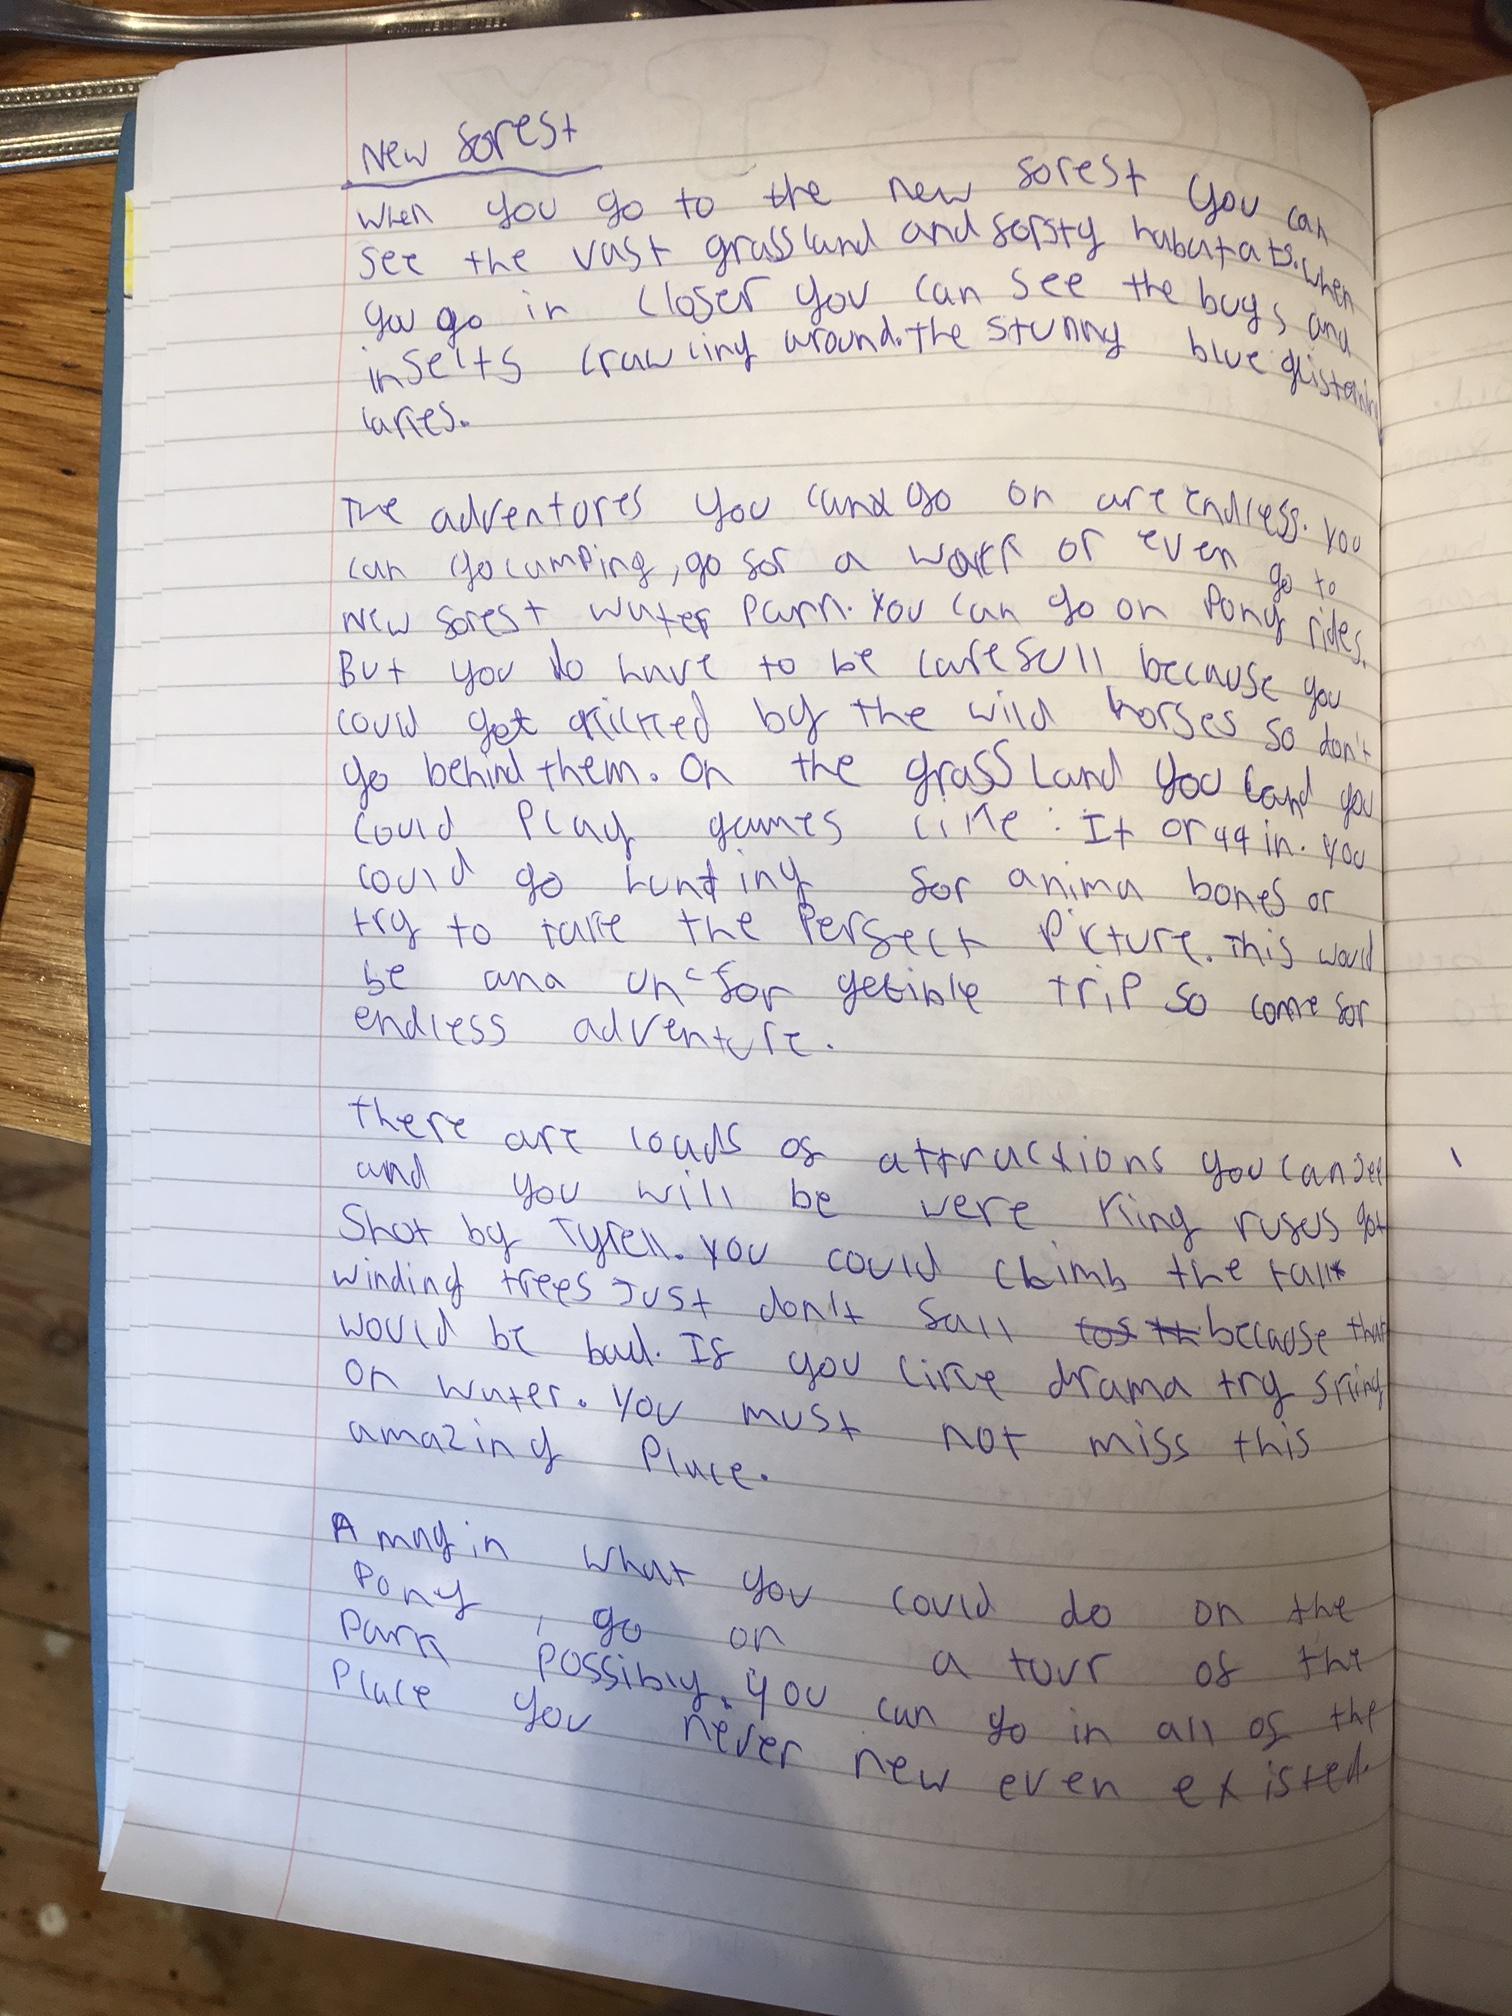 New forest
When you go to the new forest you can
see the vast grassland and forsty habatats. When
you go in closer you can see the bugs and
insects crawling around. The stunny blue glistening
lakes.
The adventores you can go on are endless. You
can go camping, go for a walk or even go to
New forest water park. You can go on Pony rides.
But you do have to be carefull because you
could get kicked by the wild horses so don't
go behind them. On the grassland you land you
could play games like: It or 44 in. You
could go hunting for anima bones or
try to take the Perfect Picture. This would
be ana un-forgetible trip so come for
endless adventure.
There are loads of attractions you can see
and you will be were King rufus got
Shot by Tyrell. You could climb the tall
winding trees Just don't fall because that
would be bad. If you like drama try
on water. You must not miss this
amazing Place.
Amagin what you could do on the
Pony, go on a tour of the
Park possibly. You can go in all of the
Place you never new even existed.